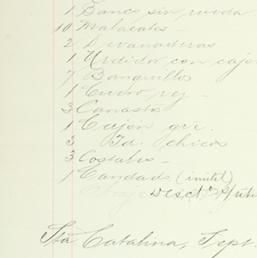 1 Banco sin rueda
10 Malacates
2 Devanaderas
1 Urdidor con caja
7 Banquillos
1 Cuero res
3 Canastos
1 Cajón gre.
3 Id. chicos
3 Costales
1 Candado (inútil)
Sta Catalina, Sept.